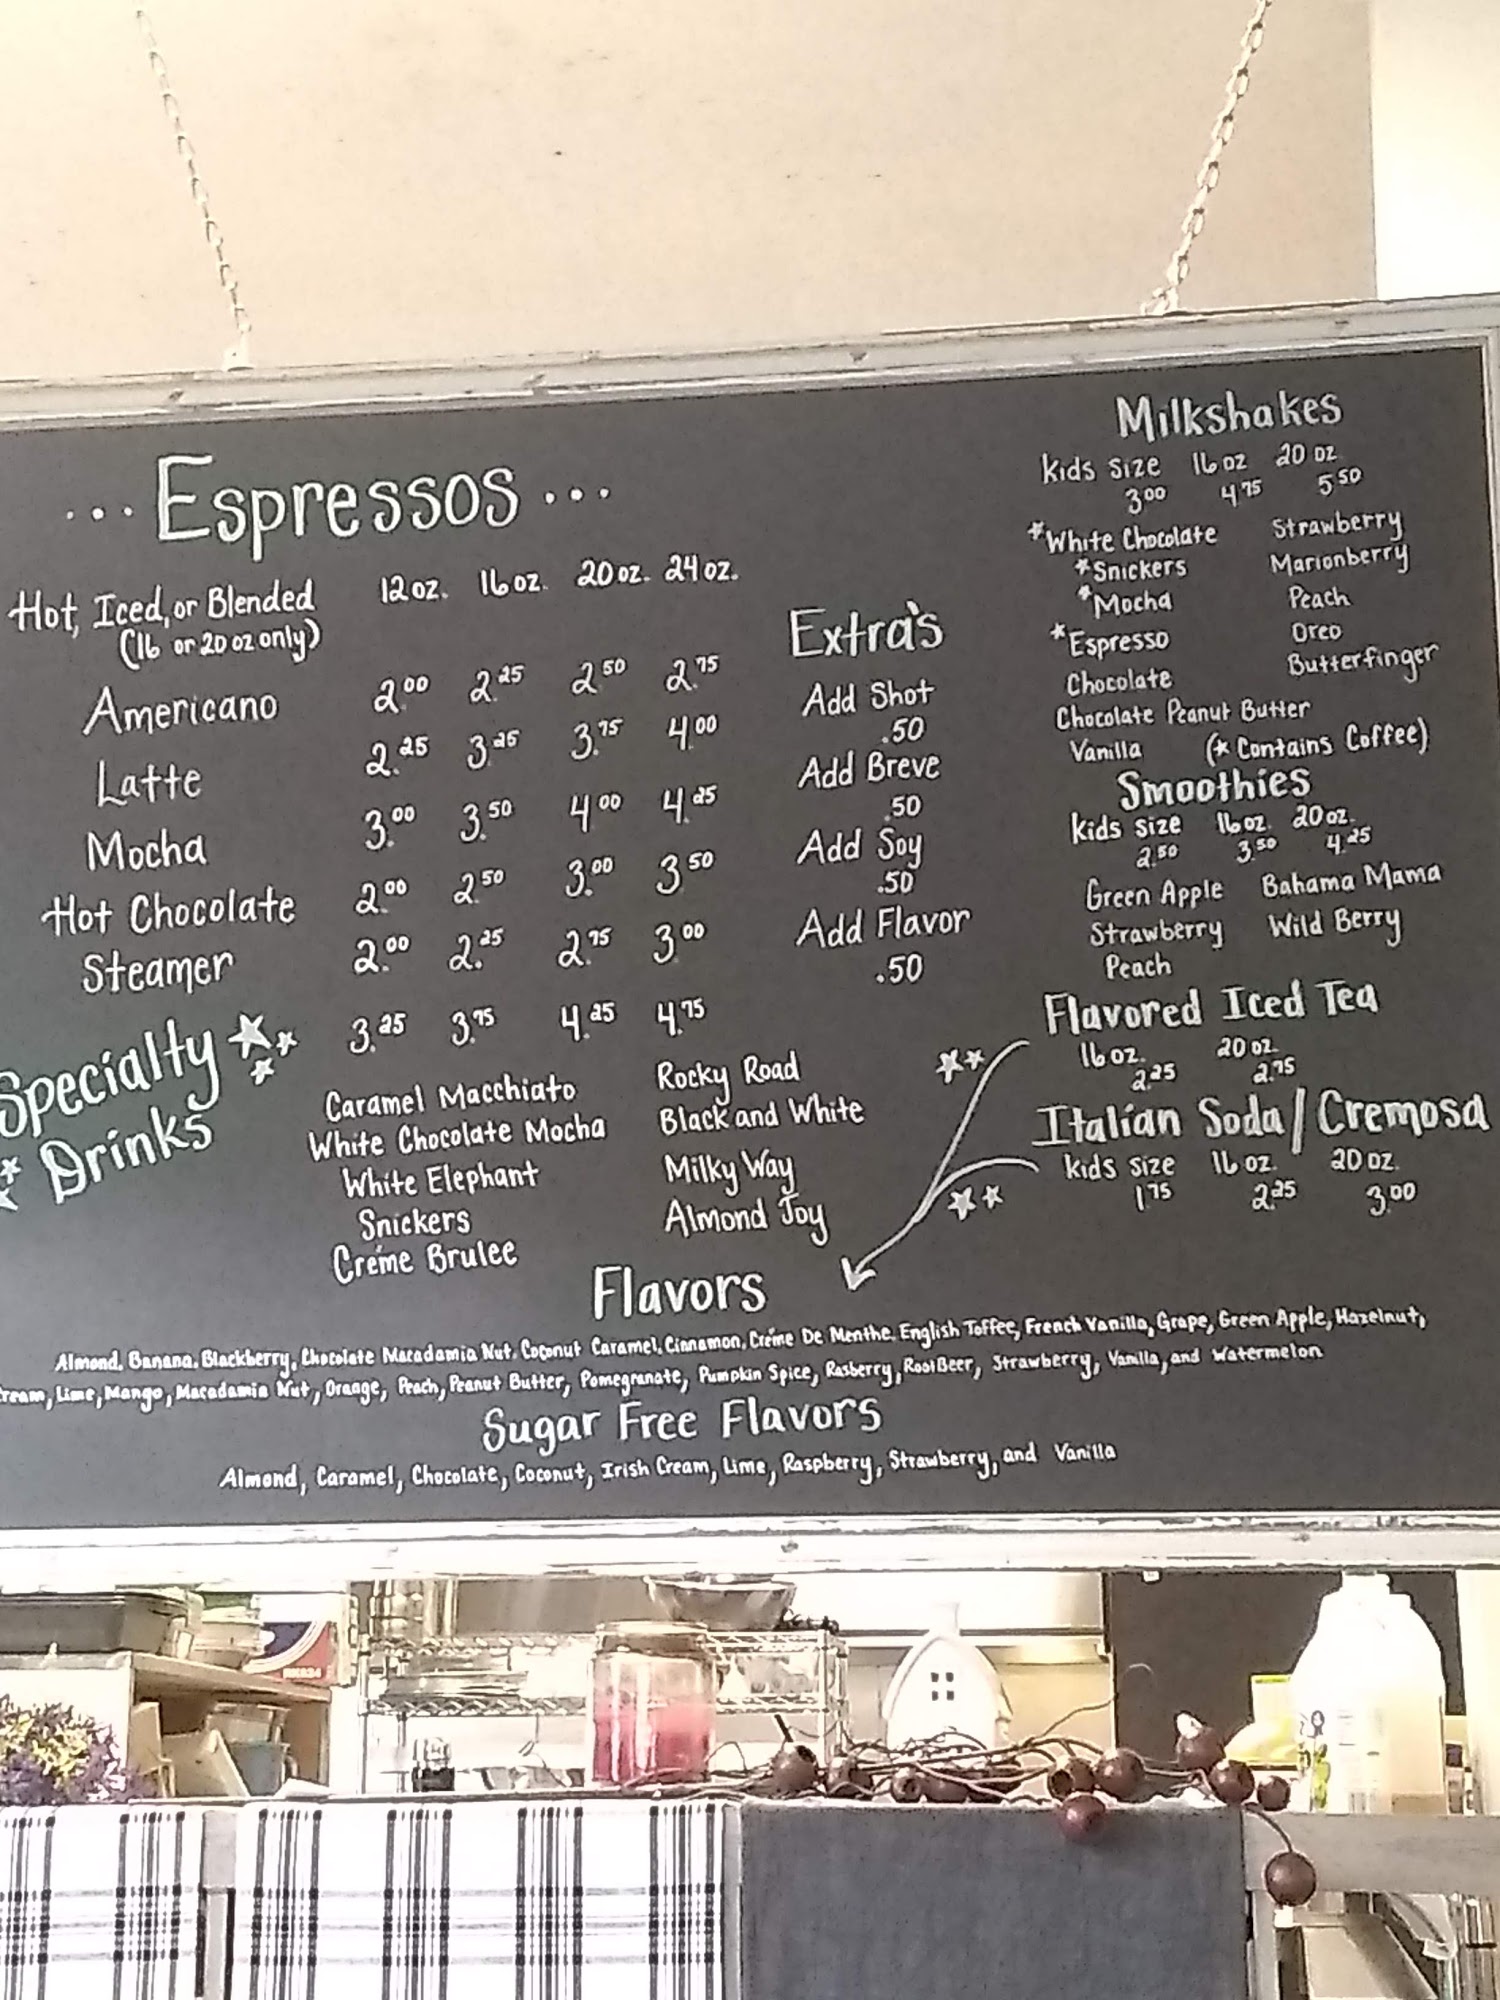 ... Espressos ...
Hot, Iced, or Blended 12 oz. 16 oz. 20 oz. 24 oz.
(16 or 20 oz only)
Americano 2.00 2.25 2.50 2.75
Latte 2.25 3.25 3.75 4.00
Mocha 3.00 3.50 4.00 4.25
Hot Chocolate 2.00 2.50 3.00 3.50
Steamer 2.00 2.25 2.75 3.00
Specialty
Drinks
3.25 3.75 4.25 4.75
Caramel Macchiato Rocky Road
White Chocolate Mocha Black and White
White Elephant Milky Way
Snickers Almond Joy
Créme Brulee
Extra's
Add Shot
.50
Add Breve
.50
Add Soy
.50
Add Flavor
.50
Milkshakes
Kids Size 16 oz 20 oz
3.00 4.75 5.50
*White Chocolate Strawberry
*Snickers Marionberry
*Mocha Peach
*Espresso Oreo
Chocolate Butterfinger
Chocolate Peanut Butter
Vanilla (* Contains Coffee)
Smoothies
Kids Size 16 oz. 20 oz.
2.50 3.50 4.25
Green Apple Bahama Mama
Strawberry Wild Berry
Peach
Flavored Iced Tea
16 oz. 20 oz.
2.25 2.75
Italian Soda/Cremosa
Kids Size 16 oz. 20 oz.
1.75 2.25 3.00
Flavors
Almond, Banana, Blackberry, Chocolate Macadamia Nut, Coconut Caramel, Cinnamon, Créme De Menthe, English Toffee, French Vanilla, Grape, Green Apple, Hazelnut,
Cream, Lime, Mango, Macadamia Nut, Orange, Peach, Peanut Butter, Pomegranate, Pumpkin Spice, Rasberry, Root Beer, Strawberry, Vanilla, and Watermelon
Sugar Free Flavors
Almond, Caramel, Chocolate, Coconut, Irish Cream, Lime, Raspberry, Strawberry, and Vanilla